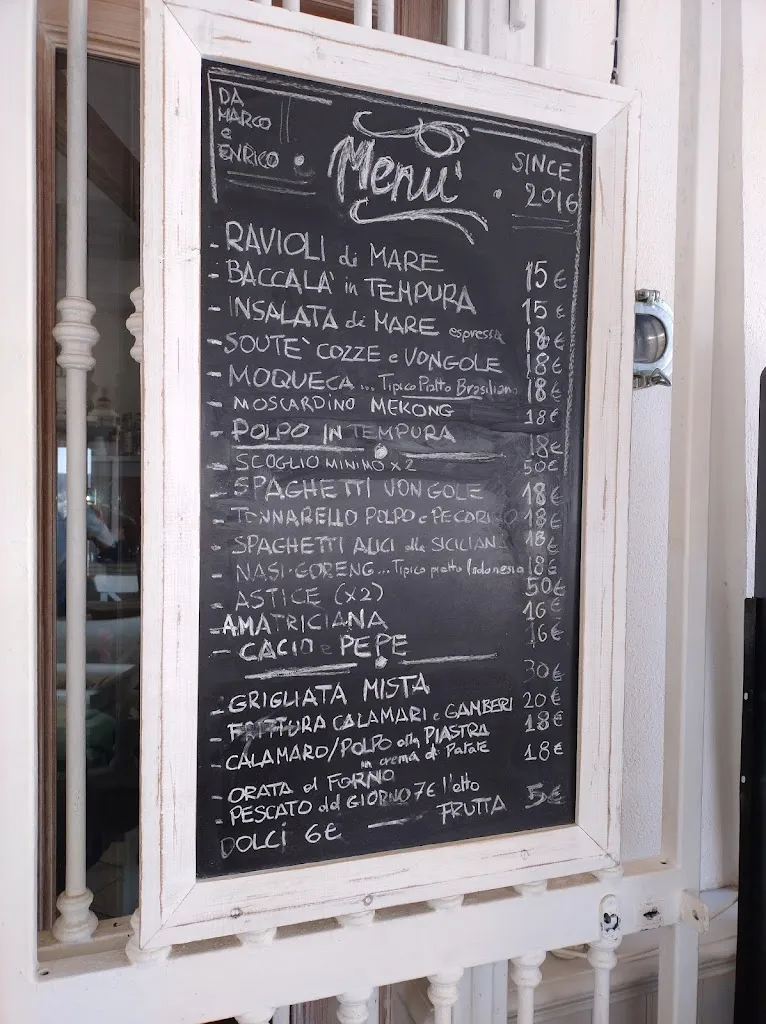 DA
MARCO
e
ENRICO
Menu'
SINCE
2016
- RAVIOLI di MARE 15€
- BACCALA' in TEMPURA 15€
- INSALATA di MARE espressa 18€
- SOUTE' COZZE e VONGOLE 18€
- MOQUECA... Tipico Piatto Brasiliano 18€
- MOSCARDINO MEKONG 18€
- POLPO IN TEMPURA 18€
- SCOGLIO MINIMO X2 50€
- SPAGHETTI VONGOLE 18€
- TONNARELLO POLPO e PECORINO 18€
- SPAGHETTI ALICI alla SICILIANA 18€
- NASI-GORENG... Tipico piatto Indonesia 18€
- ASTICE (X2) 50€
- AMATRICIANA 16€
- CACIO e PEPE 16€
- GRIGLIATA MISTA 30€
- FRITTURA CALAMARI e GAMBERI 20€
- CALAMARO/POLPO alla PIASTRA 18€
in crema di Patate
- ORATA al FORNO 18€
- PESCATO del GIORNO 7€ l'etto
DOLCI 6€ — FRUTTA 5€